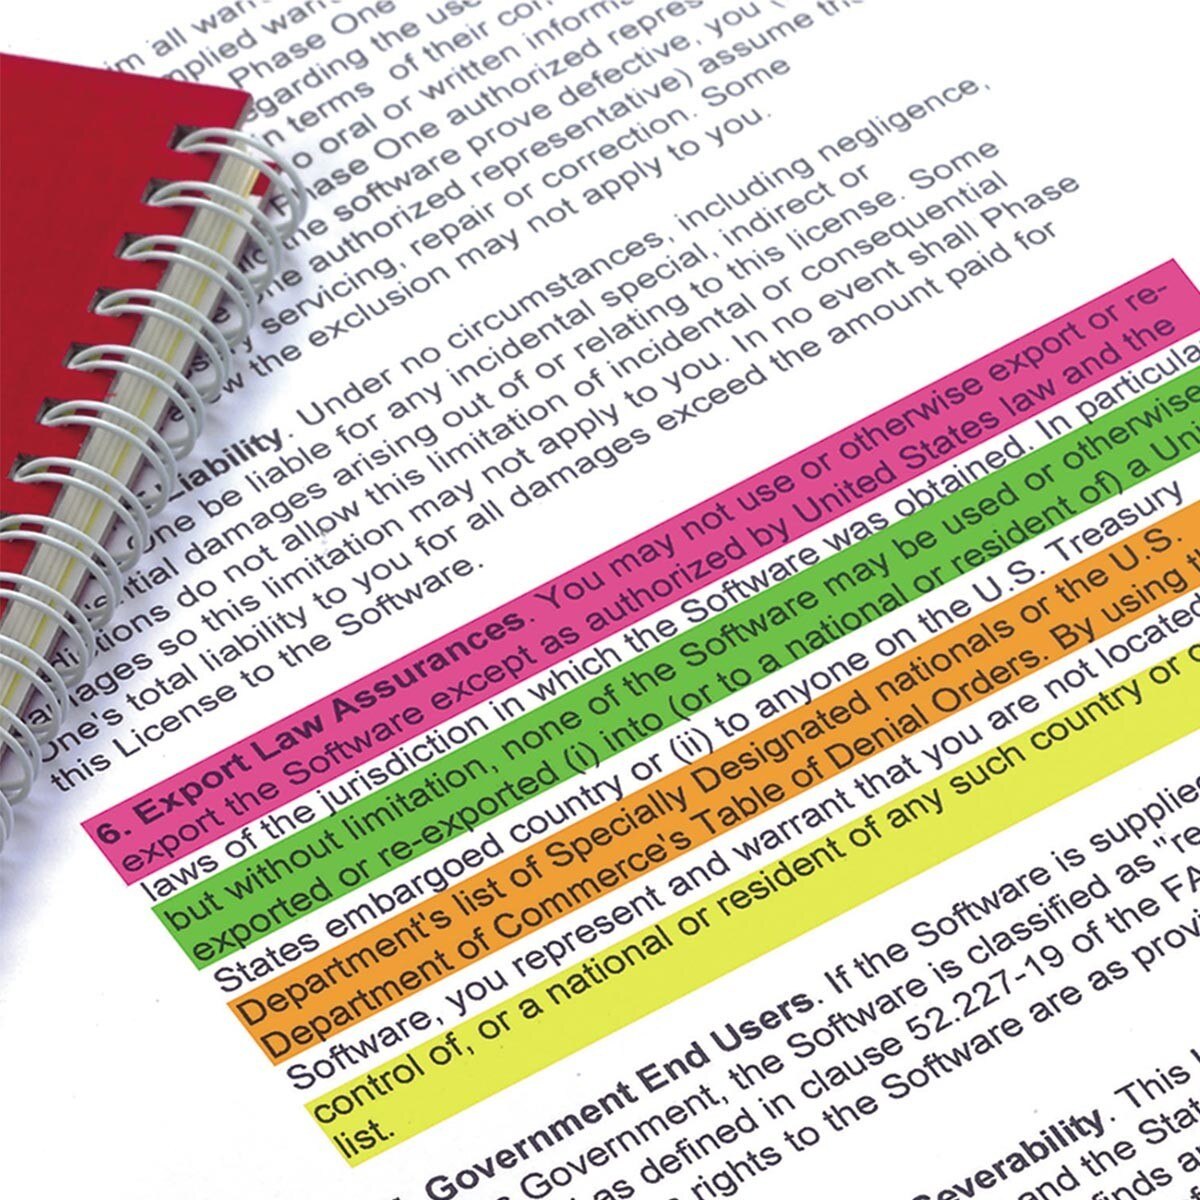 im all warr
mplied warr
Phase One
egarding the use
in terms of their cor
o oral or written inform
hase One authorized repres
the software prove defective, you (
ne authorized representative) assume th
servicing, repair or correction. Some
the exclusion may not apply to you.
Liability. Under no circumstances, including negligence,
One be liable for any incidental special, indirect or
tial damages arising out of or relating to this license. Some
ictions do not allow this limitation of incidental or consequential
ages so this limitation may not apply to you. In no event shall Phase
One's total liability to you for all damages exceed the amount paid for
this License to the Software.
6. Export Law Assurances. You may not use or otherwise export or re-
export the Software except as authorized by United States law and the
laws of the jurisdiction in which the Software was obtained. In particular
but without limitation, none of the Software may be used or otherwise
exported or re-exported (i) into (or to a national or resident of) a Uni
States embargoed country or (ii) to anyone on the U.S. Treasury
Department's list of Specially Designated nationals or the U.S.
Department of Commerce's Table of Denial Orders. By using t
Software, you represent and warrant that you are not located
control of, or a national or resident of any such country or o
list.
Government End Users. If the Software is supplie
Government, the Software is classified as "re
as defined in clause 52.227-19 of the FA
rights to the Software are as provi
everability. This
and the Stat